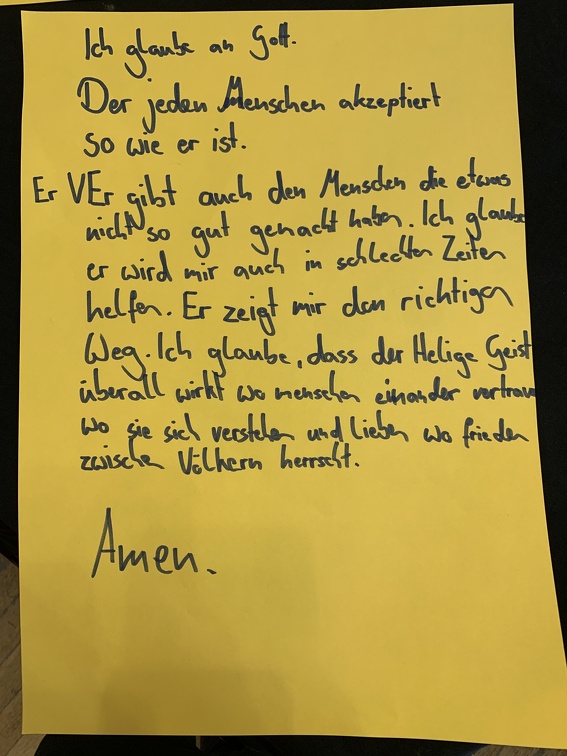 Ich glaube an Gott.
Der jeden Menschen akzeptiert
so wie er ist.
Er VEr gibt auch den Menschen die etwas
nicht so gut gemacht haben. Ich glaube
er wird mir auch in schlechten Zeiten
helfen. Er zeigt mir den richtigen
Weg. Ich glaube, dass der Helige Geist
überall wirkt wo menschen einander vertrauen
wo sie sich verstehen und lieben wo frieden
zwischen Völkern herrscht.
Amen.